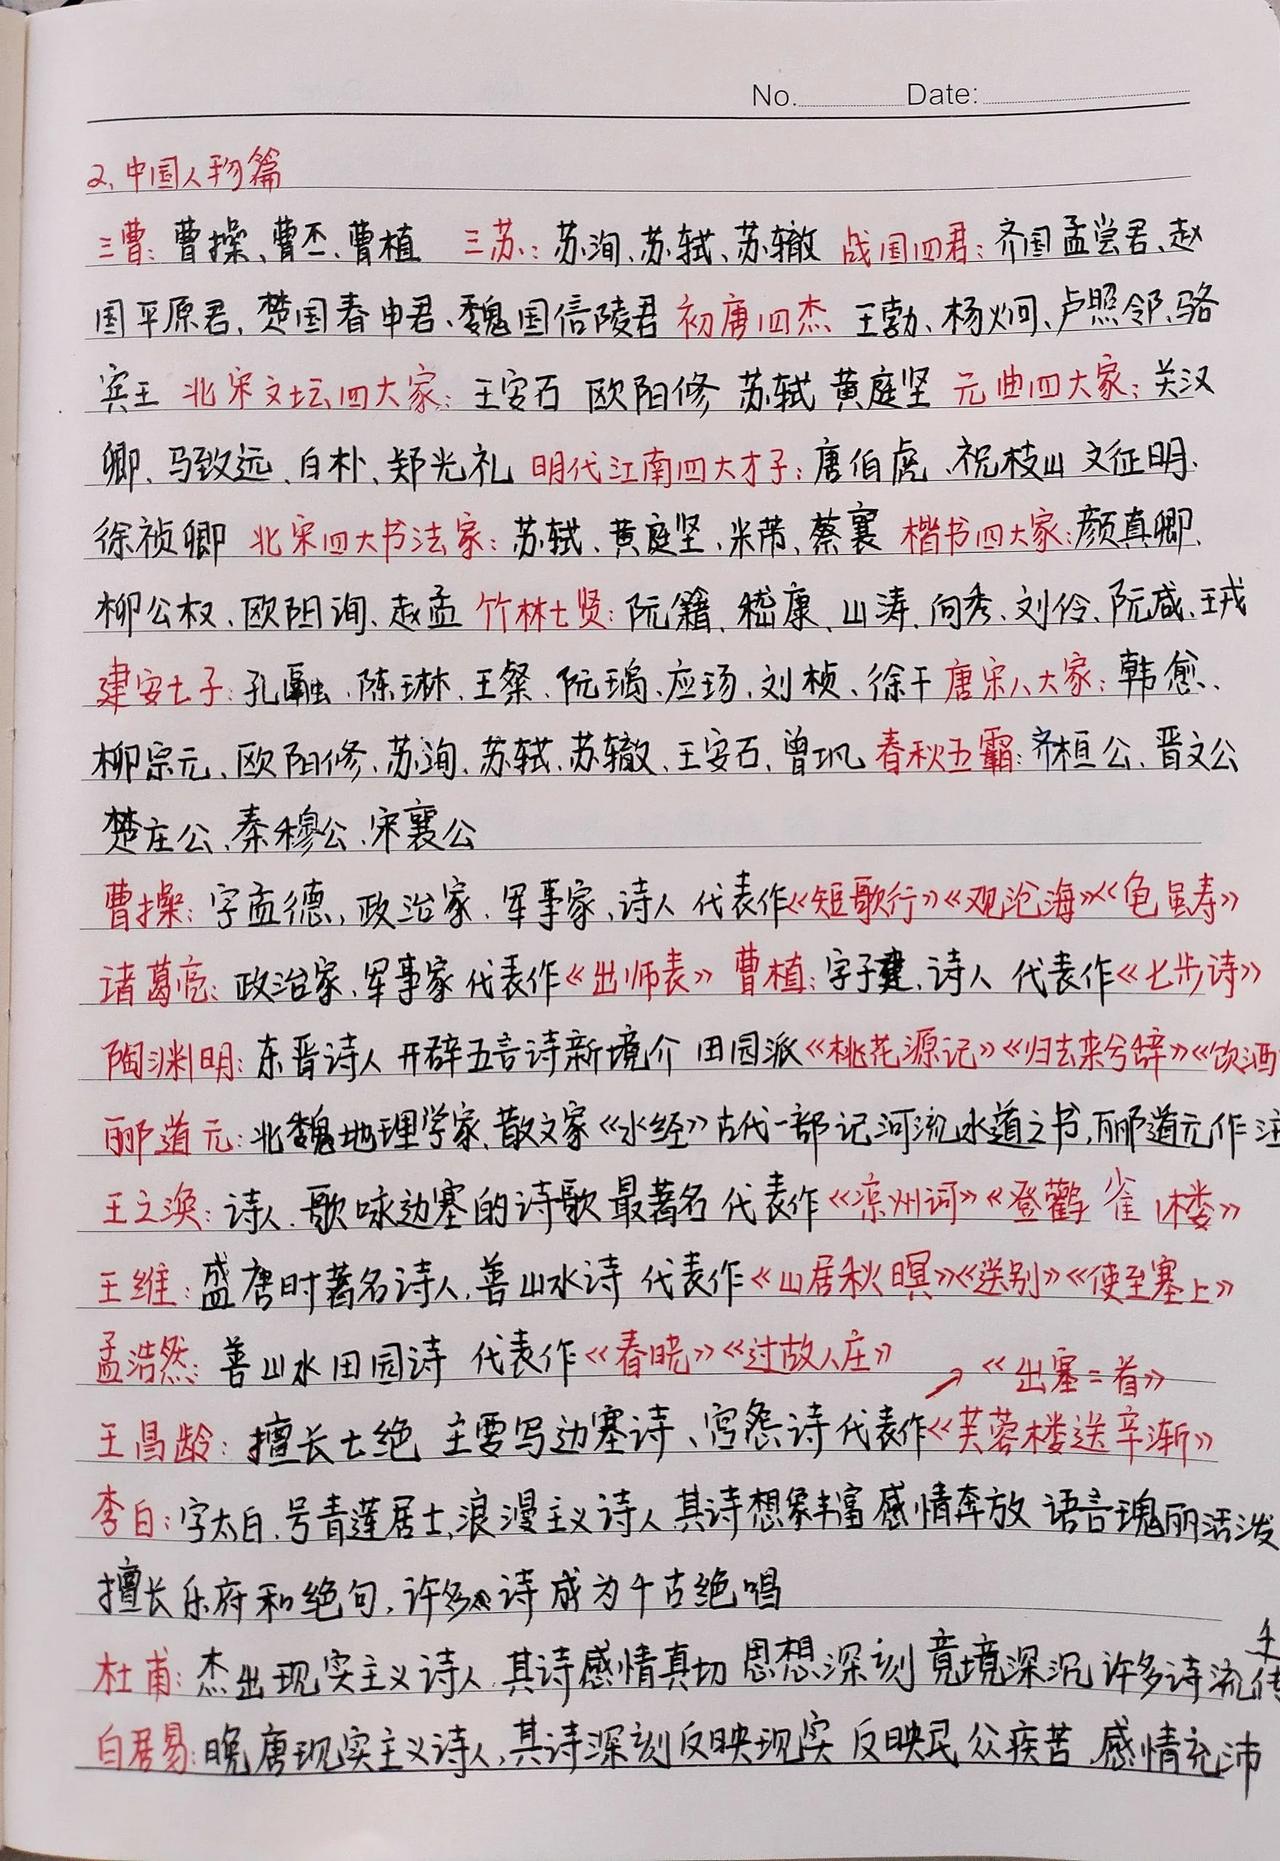 No. Date:
2、中国人物篇
三曹：曹操、曹丕、曹植 三苏：苏洵、苏轼、苏辙 战国四君：齐国孟尝君、赵
国平原君，楚国春申君、魏国信陵君 初唐四杰 王勃、杨炯、卢照邻、骆
宾王 北宋文坛四大家：王安石 欧阳修 苏轼 黄庭坚 元曲四大家：关汉
卿、马致远、白朴、郑光礼 明代江南四大才子：唐伯虎、祝枝山 文征明、
徐祯卿 北宋四大书法家：苏轼、黄庭坚、米芾、蔡襄 楷书四大家：颜真卿、
柳公权、欧阳询、赵孟 竹林七贤：阮籍、嵇康、山涛、向秀、刘伶、阮咸、王戎
建安七子：孔融、陈琳、王粲、阮瑀、应玚、刘桢、徐干 唐宋八大家：韩愈、
柳宗元、欧阳修、苏洵、苏轼、苏辙、王安石、曾巩 春秋五霸：齐桓公、晋文公
楚庄公、秦穆公、宋襄公
曹操：字孟德，政治家、军事家、诗人 代表作《短歌行》《观沧海》《龟虽寿》
诸葛亮：政治家、军事家 代表作《出师表》 曹植：字子建、诗人 代表作《七步诗》
陶渊明：东晋诗人 开辟五言诗新境介 田园派《桃花源记》《归去来兮辞》《饮酒
郦道元：北魏地理学家、散文家《水经》古代一部记河流水道之书，郦道元作注
王之涣：诗人、歌咏边塞的诗歌 最著名 代表作《凉州词》《登鹳雀楼》
王维：盛唐时著名诗人，善山水诗 代表作《山居秋暝》《送别》《使至塞上》
孟浩然：善山水田园诗 代表作《春晓》《过故人庄》
《出塞二首》
王昌龄：擅长七绝 主要写边塞诗、宫怨诗 代表作《芙蓉楼送辛渐》
李白：字太白、号青莲居士，浪漫主义诗人，其诗想象丰富 感情奔放 语言瑰丽活泼
擅长乐府和绝句，许多诗成为千古绝唱
杜甫：杰出现实主义诗人，其诗感情真切 思想深刻 竟境深沉 许多诗流传
白居易：晚唐现实主义诗人，其诗深刻反映现实 反映民众疾苦，感情充沛